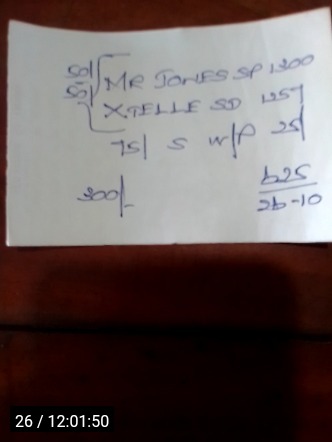 50/ MR JONES SP 1300
50/ XTELLE SD 1257
75/ S W/P 25/
300/-
625
2b-10
26 / 12:01:50